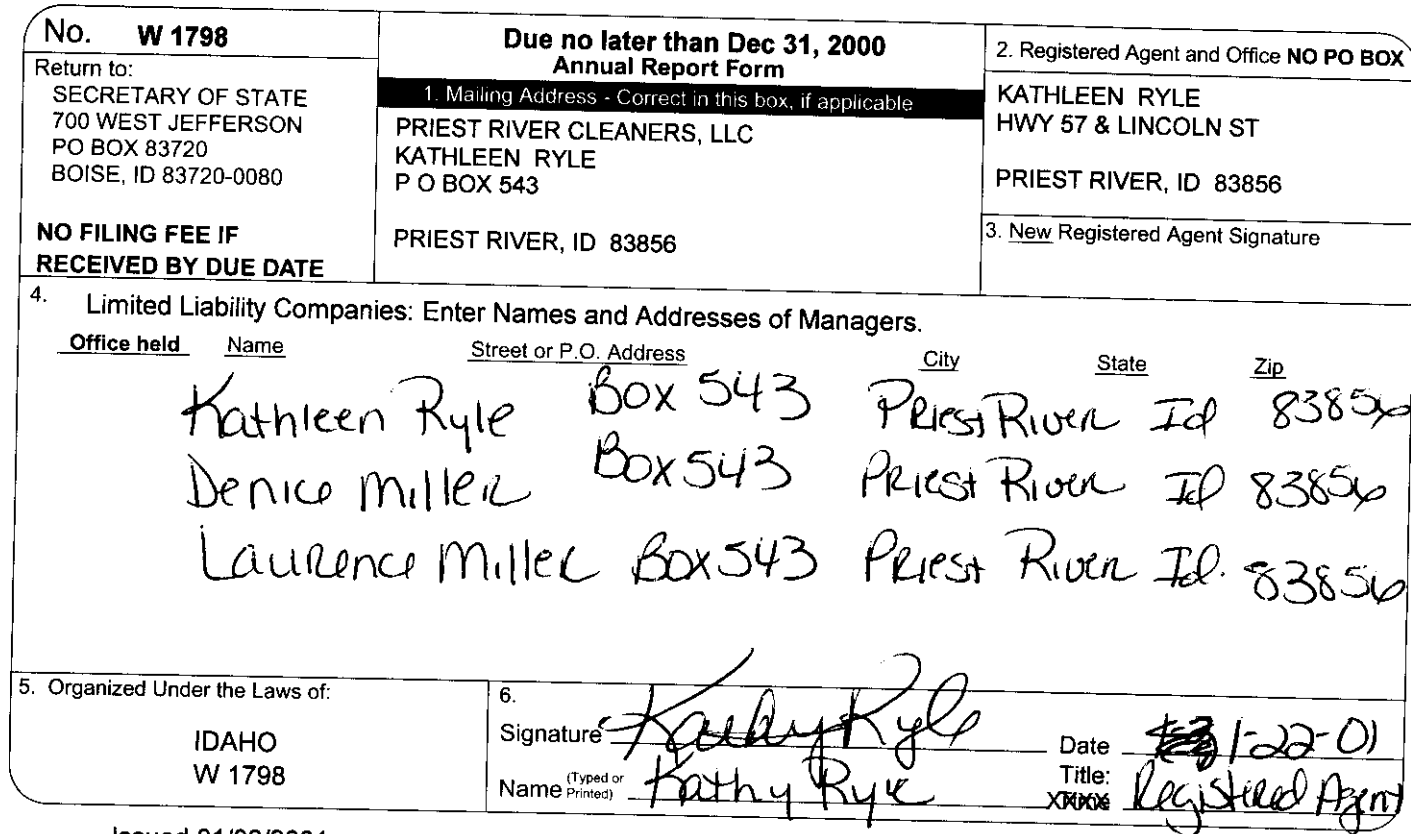 No. W 1798
Return to:
SECRETARY OF STATE
700 WEST JEFFERSON
PO BOX 83720
BOISE, ID 83720-0080
NO FILING FEE IF
RECEIVED BY DUE DATE
Due no later than Dec 31, 2000
Annual Report Form
1. Mailing Address - Correct in this box, if applicable
PRIEST RIVER CLEANERS, LLC
KATHLEEN RYLE
P O BOX 543
PRIEST RIVER, ID 83856
2. Registered Agent and Office NO PO BOX
KATHLEEN RYLE
HWY 57 & LINCOLN ST
PRIEST RIVER, ID 83856
3. New Registered Agent Signature
4. Limited Liability Companies: Enter Names and Addresses of Managers.
Office held Name Street or P.O. Address City State Zip
Kathleen Ryle Box 543 Priest River Id 83856
Denice Miller Box 543 Priest River Id 83856
Laurence Miller Box 543 Priest River Id. 83856
5. Organized Under the Laws of:
IDAHO
W 1798
6.
Signature Kathy Ryle Date 1-22-01
Name (Typed or Printed) Kathy Ryle Title: Registered Agent